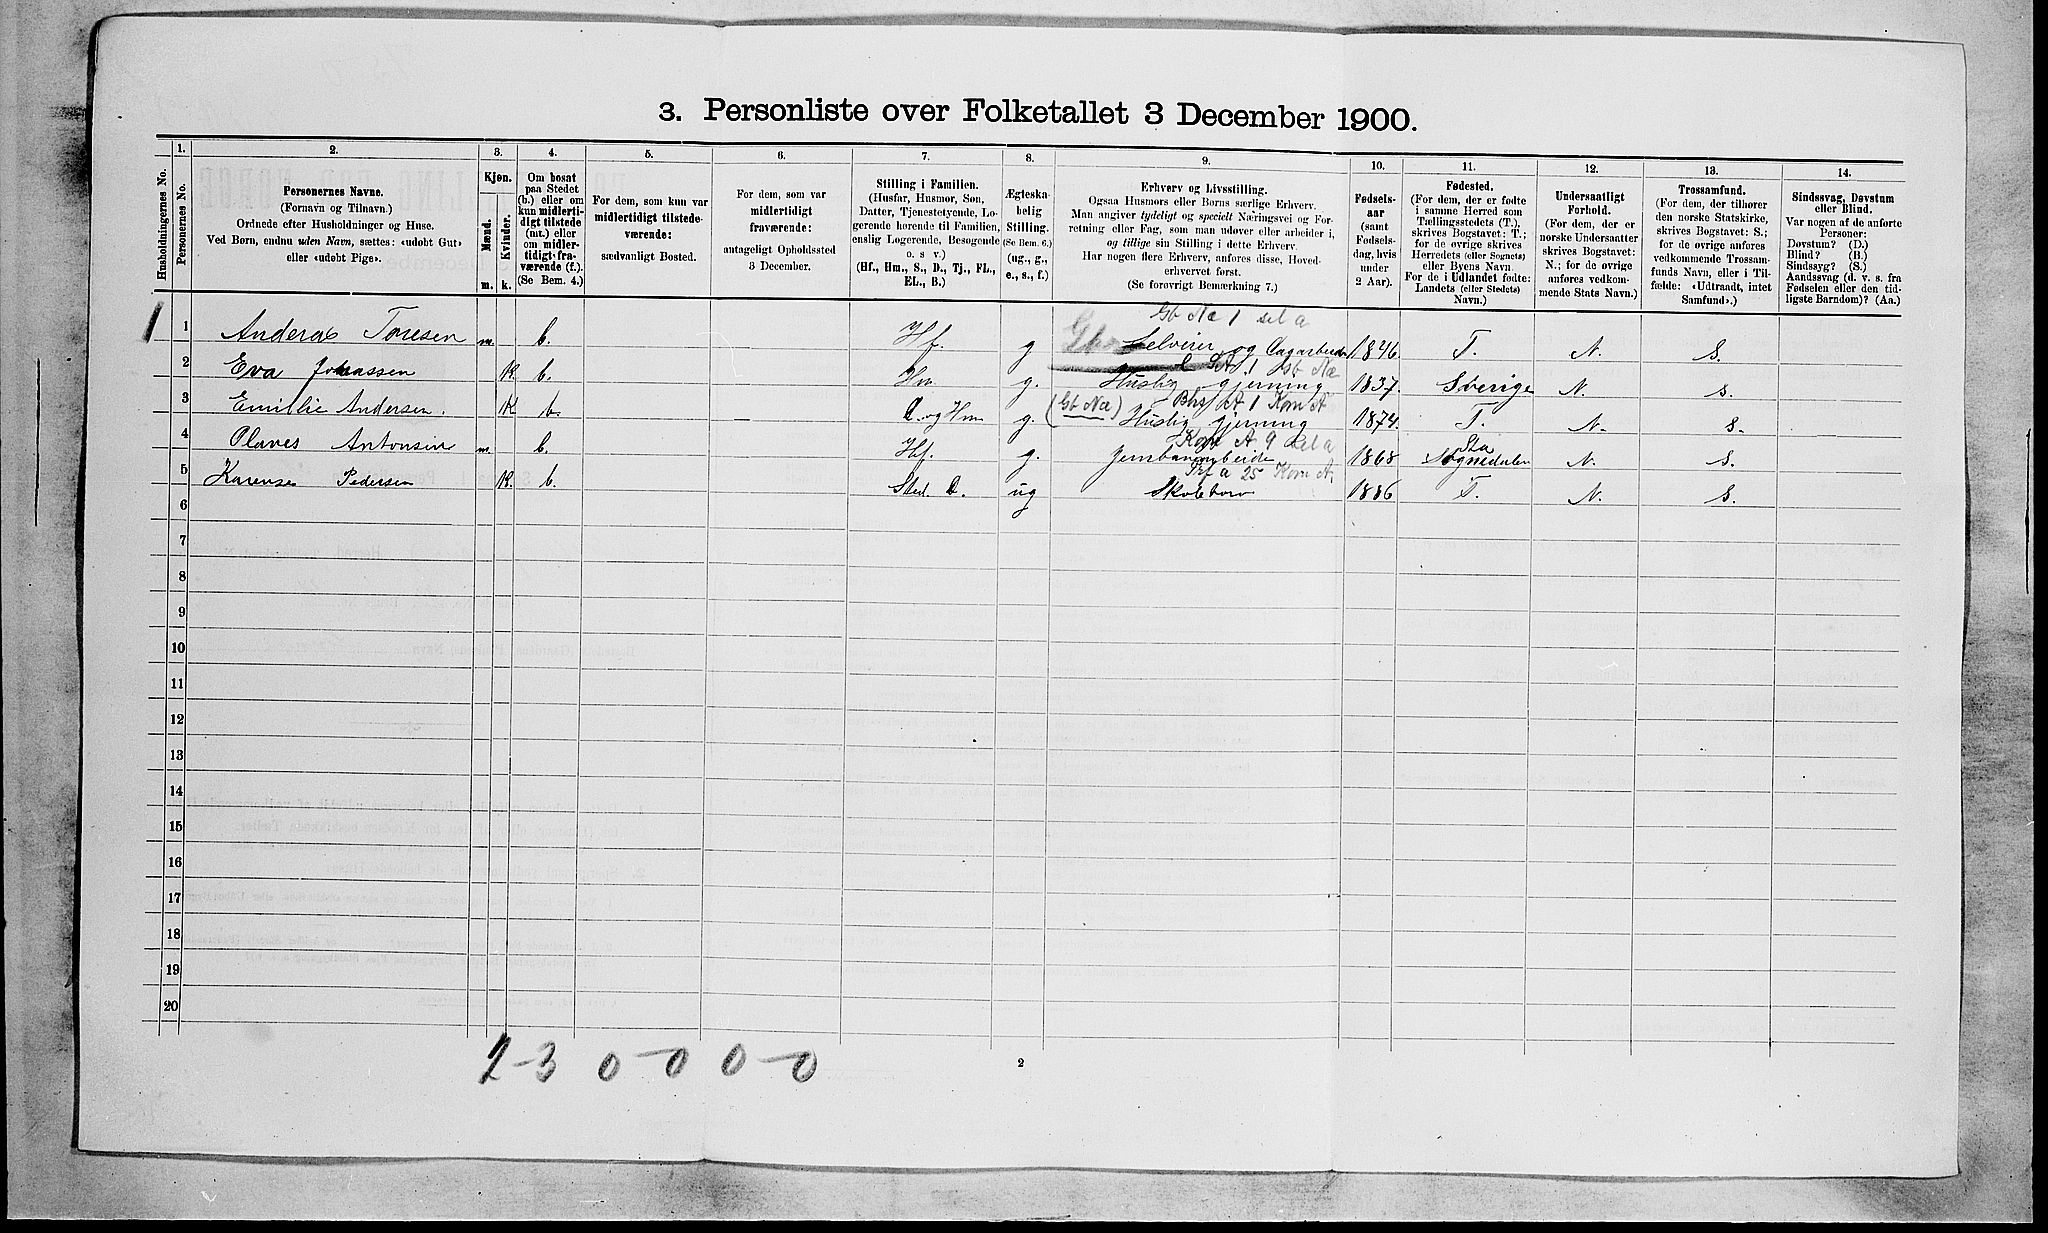 3. Personliste over Folketallet 3 December 1900.
Husholdningernes No.
1. Personernes No.
2. Personernes Navne.
(Fornavn og Tilnavn.)
Ordnede efter Husholdninger og Huse.
Ved Børn, endnu uden Navn, sættes: «udøbt Gut»
eller «udøbt Pige».
3. Kjøn.
Mænd. Kvinder.
m. k.
4. Om bosat
paa Stedet
(b.) eller om
kun midlerti-
digt tilstede
(mt.) eller
om midler-
tidigt fra-
værende (f.).
(Se Bem. 4.)
5. For dem, som kun var
midlertidigt tilstede-
værende:
sædvanligt Bosted.
6. For dem, som var
midlertidigt
fraværende:
antageligt Opholdssted
3 December.
7. Stilling i Familien.
(Husfar, Husmor, Søn,
Datter, Tjenestetyende, Lo-
gerende hørende til Familien,
enslig Logerende, Besøgende
o. s v.)
(Hf., Hm., S., D., Tj., FL.,
EL., B.)
8. Ægteska-
belig
Stilling.
(Se Bem. 6.)
(ug., g.,
e., s., f.)
9. Erhverv og Livsstilling.
Ogsaa Husmors eller Børns særlige Erhverv.
Man angiver tydeligt og specielt Næringsvei og For-
retning eller Fag, som man udøver eller arbeider i,
og tillige sin Stilling i dette Erhverv.
Har nogen flere Erhverv, anføres disse, Hoved-
erhvervet først.
(Se forøvrigt Bemærkning 7.)
10. Fødsels-
aar
(samt
Fødsels-
dag, hvis
under
2 Aar).
11. Fødested.
(For dem, der er fødte
i samme Herred som
Tællingsstedets (T.),
skrives Bogstavet: T.;
for de øvrige skrives
Herredets (eller Sognets)
eller Byens Navn.
For de i Udlandet fødte:
Landets (eller Stedets)
Navn.)
12. Undersaatligt
Forhold.
(For dem, der er
norske Undersaatter
skrives Bogstavet:
N.; for de øvrige
anføres vedkom-
mende Stats Navn.)
13. Trossamfund.
(For dem, der tilhører
den norske Statskirke,
skrives Bogstavet: S.;
for de øvrige anføres
vedkommende Trossam-
funds Navn, eller i Til-
fælde: «Udtraadt, intet
Samfund».)
14. Sindssvag, Døvstum
eller Blind.
Var nogen af de anførte
Personer:
Døvstum? (D.)
Blind? (B.)
Sindssyg? (S.)
Aandssvag (d. v. s. fra
Fødselen eller den tid-
ligste Barndom)? (Aa.)
Gb Næ 1 sel a
1 1 Anderas Toresen m. b. Hf. g Selveier og Dagarbeider 1846. T. N. S.
A 1 Gb Næ
2 Eva Johassen K. b. Hm. g. Huslig gjerning 1837. Sverige N. S.
A 1 Kom A
3 Emillie Andersen. K b. D. og Hm g. (Gb Næ) Huslig gjerning 1874. T. N. S.
Kom A 9 sel a
4 Olaves Antonsen m. b. Hf. g. Jernbanearbeide 1868 Sta Sognedalen N. S.
Prf a 25 Kom A.
5 Karense Pedersen K. b. Sted. D. ug Skolebarn 1886 T. N. S.
6
7
8
9
10
11
12
13
14
15
16
17
18
19
20
2-3 0-0 0-0
2